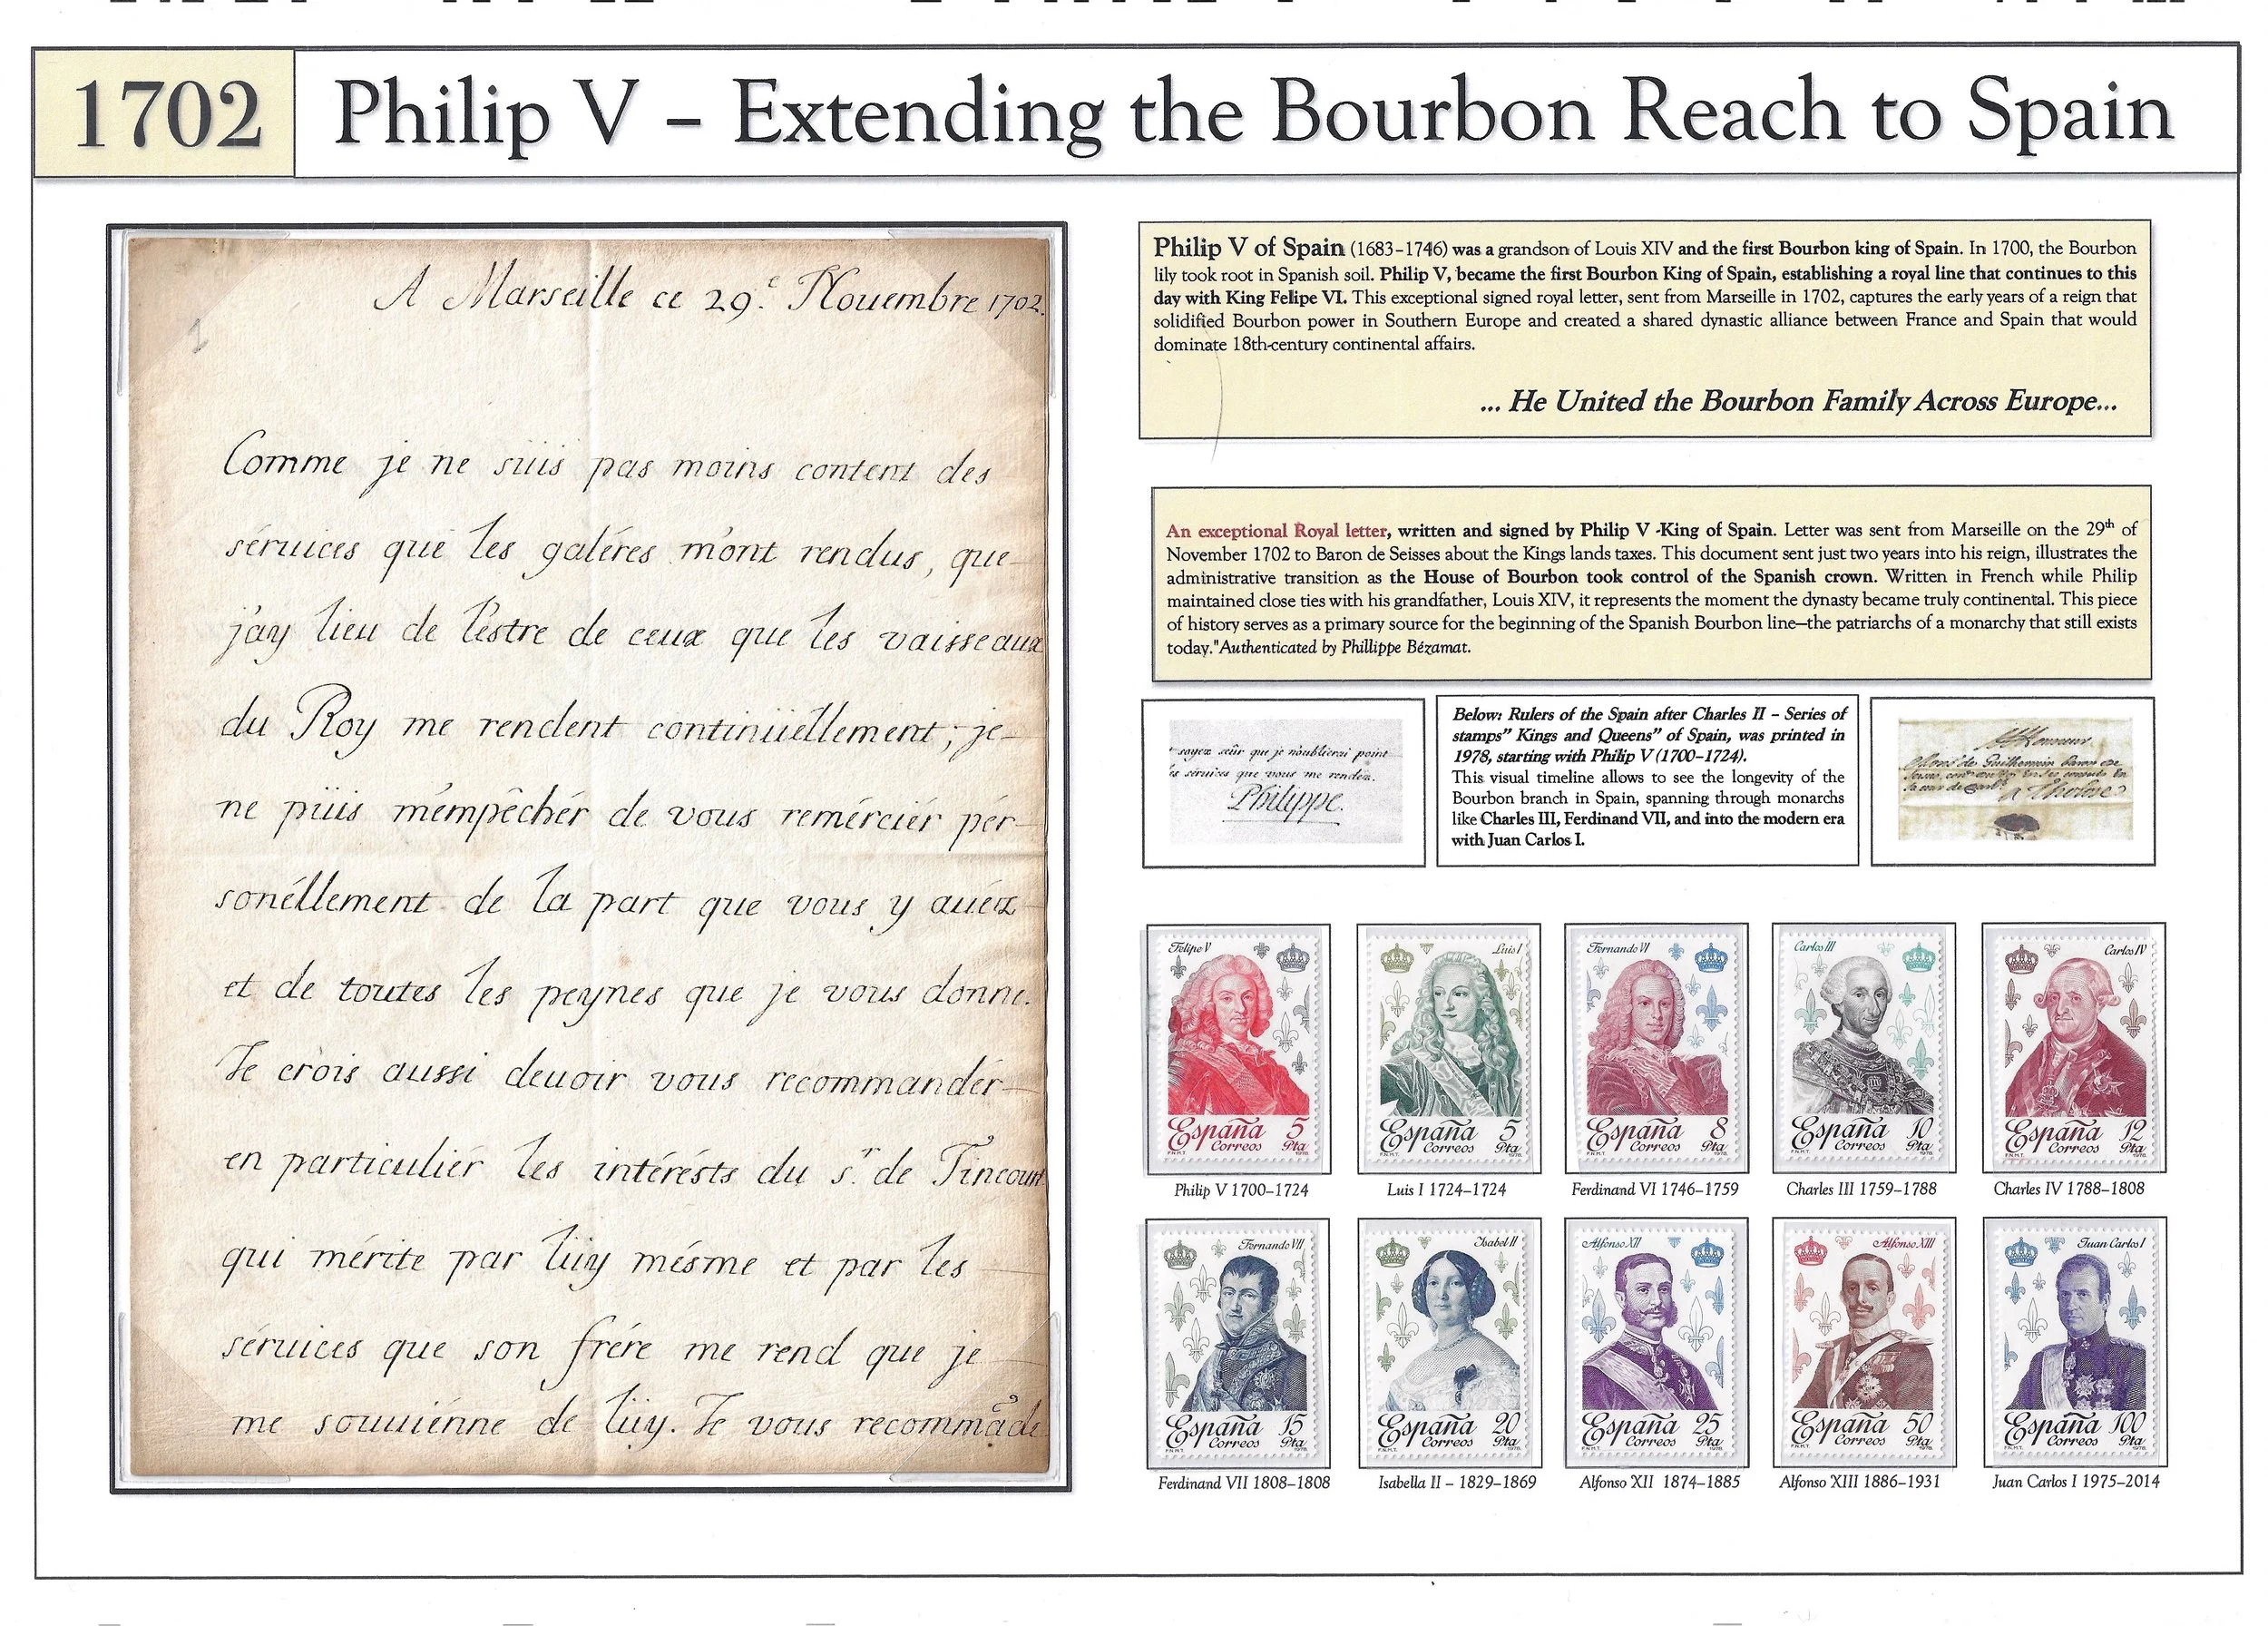 1702
Philip V – Extending the Bourbon Reach to Spain
A Marseille ce 29.e Nouembre 1702.
1
Comme je ne suis pas moins content des
séruices que les galéres m'ont rendus, que
j'ay lieu de l'estre de ceux que les vaisseaux
du Roy me rendent continüellement; je
ne püis m'empêchér de vous remérciér pér-
sonéllement de la part que vous y auéz
et de toutes les peynes que je vous donne.
Je crois aussi deuoir vous recommandér
en particuliér les intérésts du s.r de Tincourt
qui mérite par lüy mésme et par les
séruices que son frére me rend que je
me souuiénne de lüy. Je vous recommãde
Philip V of Spain (1683-1746) was a grandson of Louis XIV and the first Bourbon king of Spain. In 1700, the Bourbon
lily took root in Spanish soil. Philip V, became the first Bourbon King of Spain, establishing a royal line that continues to this
day with King Felipe VI. This exceptional signed royal letter, sent from Marseille in 1702, captures the early years of a reign that
solidified Bourbon power in Southern Europe and created a shared dynastic alliance between France and Spain that would
dominate 18th-century continental affairs.
... He United the Bourbon Family Across Europe...
An exceptional Royal letter, written and signed by Philip V -King of Spain. Letter was sent from Marseille on the 29th of
November 1702 to Baron de Seisses about the Kings lands taxes. This document sent just two years into his reign, illustrates the
administrative transition as the House of Bourbon took control of the Spanish crown. Written in French while Philip
maintained close ties with his grandfather, Louis XIV, it represents the moment the dynasty became truly continental. This piece
of history serves as a primary source for the beginning of the Spanish Bourbon line—the patriarchs of a monarchy that still exists
today."Authenticated by Phillippe Bézamat.
soyez seûr que je n'oublierai point
les séruices que vous me rendez.
Philippe.
Below: Rulers of the Spain after Charles II – Series of
stamps" Kings and Queens" of Spain, was printed in
1978, starting with Philip V (1700-1724).
This visual timeline allows to see the longevity of the
Bourbon branch in Spain, spanning through monarchs
like Charles III, Ferdinand VII, and into the modern era
with Juan Carlos I.
A Monsieur
Felipe V
España 5
Correos Pta
F.N.M.T. 1978
Philip V 1700-1724
Luis I
España 5
Correos Pta
F.N.M.T. 1978
Luis I 1724-1724
Fernando VI
España 8
Correos Pta
F.N.M.T. 1978
Ferdinand VI 1746-1759
Carlos III
España 10
Correos Pta
F.N.M.T. 1978
Charles III 1759-1788
Carlos IV
España 12
Correos Pta
F.N.M.T. 1978
Charles IV 1788-1808
Fernando VII
España 15
Correos Pta
F.N.M.T. 1978
Ferdinand VII 1808-1808
Isabel II
España 20
Correos Pta
F.N.M.T. 1978
Isabella II – 1829-1869
Alfonso XII
España 25
Correos Pta
F.N.M.T. 1978
Alfonso XII 1874-1885
Alfonso XIII
España 50
Correos Pta
F.N.M.T. 1978
Alfonso XIII 1886-1931
Juan Carlos I
España 100
Correos Pta
F.N.M.T. 1978
Juan Carlos I 1975-2014